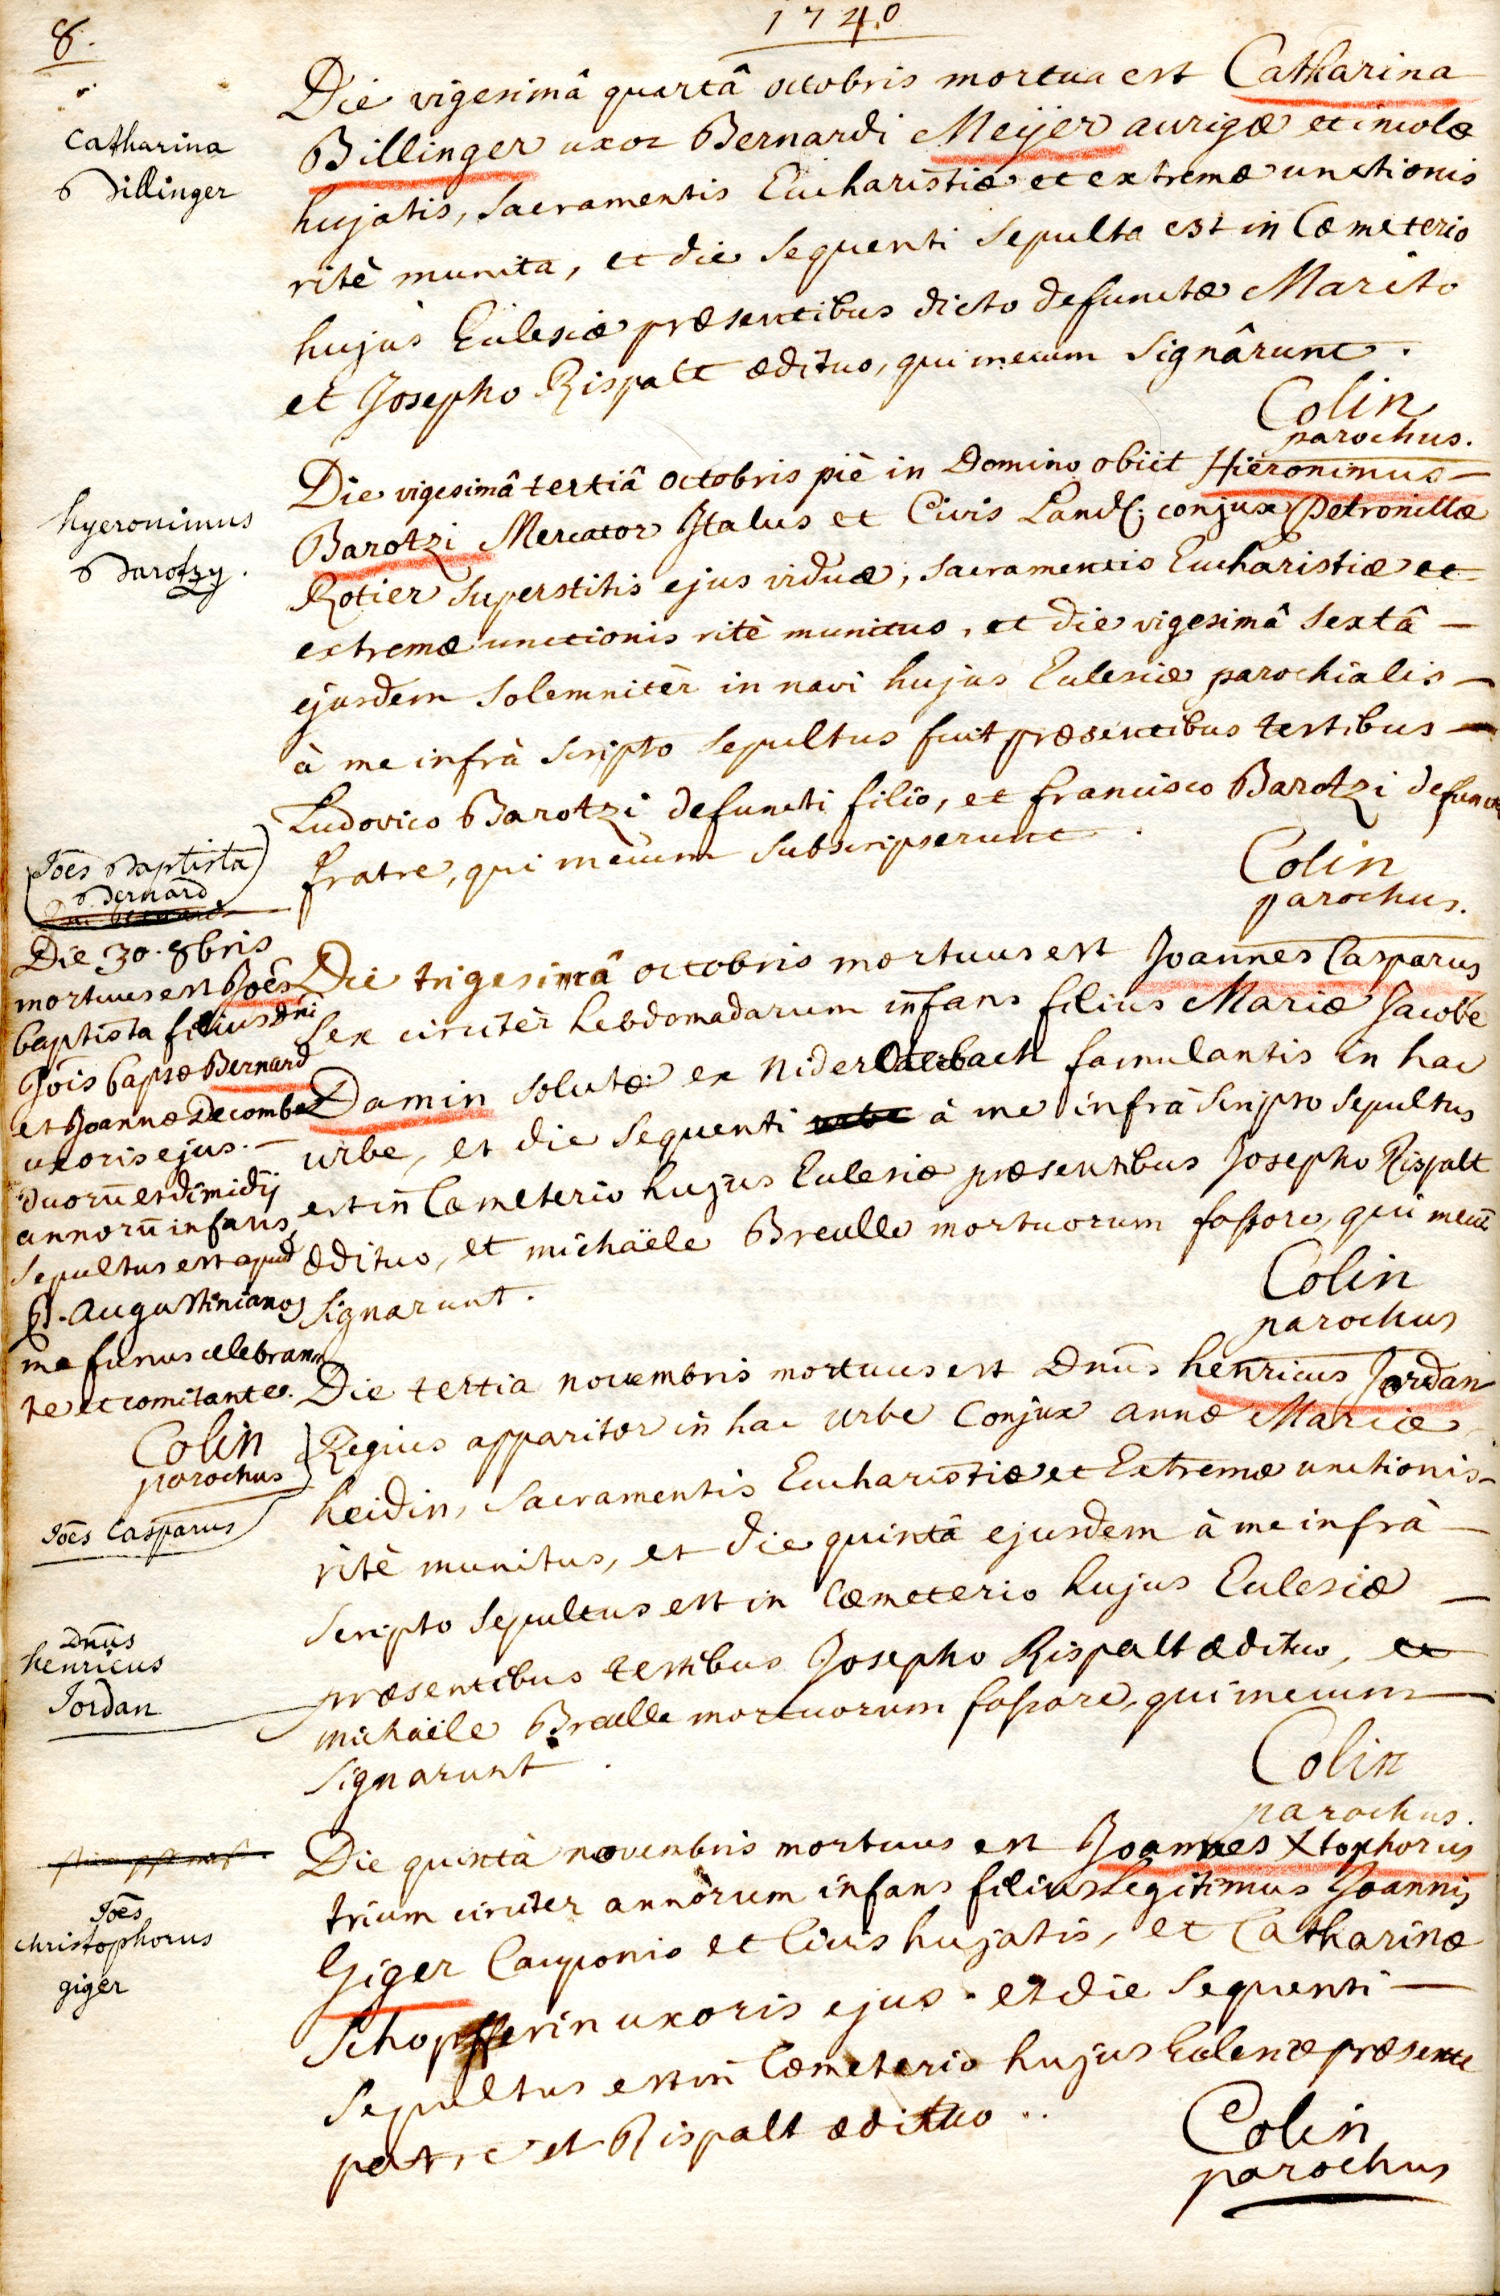 8.
1740
Catharina
Billinger
Die vigesimâ quartâ octobris mortua est Catharina
Billinger uxor Bernardi Meijer aurigæ et incolæ
hujatis, sacramentis Eucharistiæ et extremæ unctionis
ritè munita, et die sequenti sepulta est in Cœmeterio
hujus Ecclesiæ præsentibus dicto defunctæ Marito
et Josepho Rispalt ædituo, qui mecum signârunt.
Colin
parochus.
hyeronimus
Barotzy.
Die vigesimâ tertiâ octobris piè in Domino obiit Hieronimus
Barotzi Mercator Italus et Civis Land; conjux Petronillæ
Rotier superstitis ejus viduæ, sacramentis Eucharistiæ et
extremæ unctionis ritè munitus, et die vigesimâ sextâ —
ejusdem solemnitèr in navi hujus Ecclesiæ parochialis —
à me infrà scripto sepultus fuit præsentibus testibus —
Ludovico Barotzi defuncti filio, et francisco Barotzi defuncti
fratre, qui mecum subscripserunt.
Colin
parochus.
(Jões Baptista)
Bernard
Die 30. 8bris
mortuus est Joês
baptista filius Dni
Jôis bapsæ Bernard
et Joannæ Decombe
uxoris ejus. —
duorū et dimidij
annorū infans,
sepultus est apud
P. Augustinianos
me funus celebran
te et comitante.
Colin
parochus
Jões Casparus
Die trigesimâ octobris mortuus est Joannes Casparus
sex circitèr hebdomadarum infans filius Mariæ Jacobe
Damin solutæ ex Niderlaubach famulantis in hac
urbe, et die sequenti à me infrà scripto sepultus
est in Cœmeterio hujus Ecclesiæ præsentibus Josepho Rispalt
ædituo, et michäele Breulle mortuorum fossore, qui mecū
signarunt.
Colin
parochus
Dnūs
henricus
Jordan
Die tertia novembris mortuus est Dnūs henricus Jordan
Regius apparitor in hac urbe Conjux annæ Mariæ
heidin, sacramentis Eucharistiæ et Extremæ unctionis —
ritè munitus, et die quintâ ejusdem à me infrà —
scripto sepultus est in Cœmeterio hujus Ecclesiæ —
præsentibus testibus Josepho Rispalt ædituo, et
michäele Breulle mortuorum fossore, qui mecum —
signarunt.
Colin
parochus.
Jões
christophorus
giger
Die quintà novembris mortuus est Joannes Xtophorus
trium circiter annòrum infans filius Legitimus Joannis
Giger Cauponis et Civis hujatis, et Catharinæ
Schopfferin uxoris ejus. et die sequenti —
sepultus est in Cœmeterio hujus Ecclesiæ præsente
patre et Rispalt ædituo..
Colin
parochus